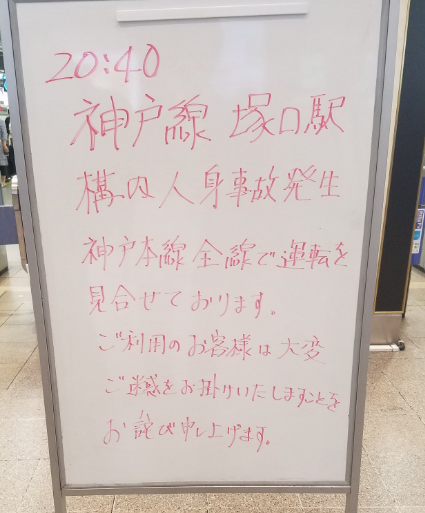 20:40
神戸線 塚口駅
構内人身事故発生
神戸本線全線で運転を
見合せております。
ご利用のお客様は大変
ご迷惑をお掛けいたしますことを
お詫び申し上げます。